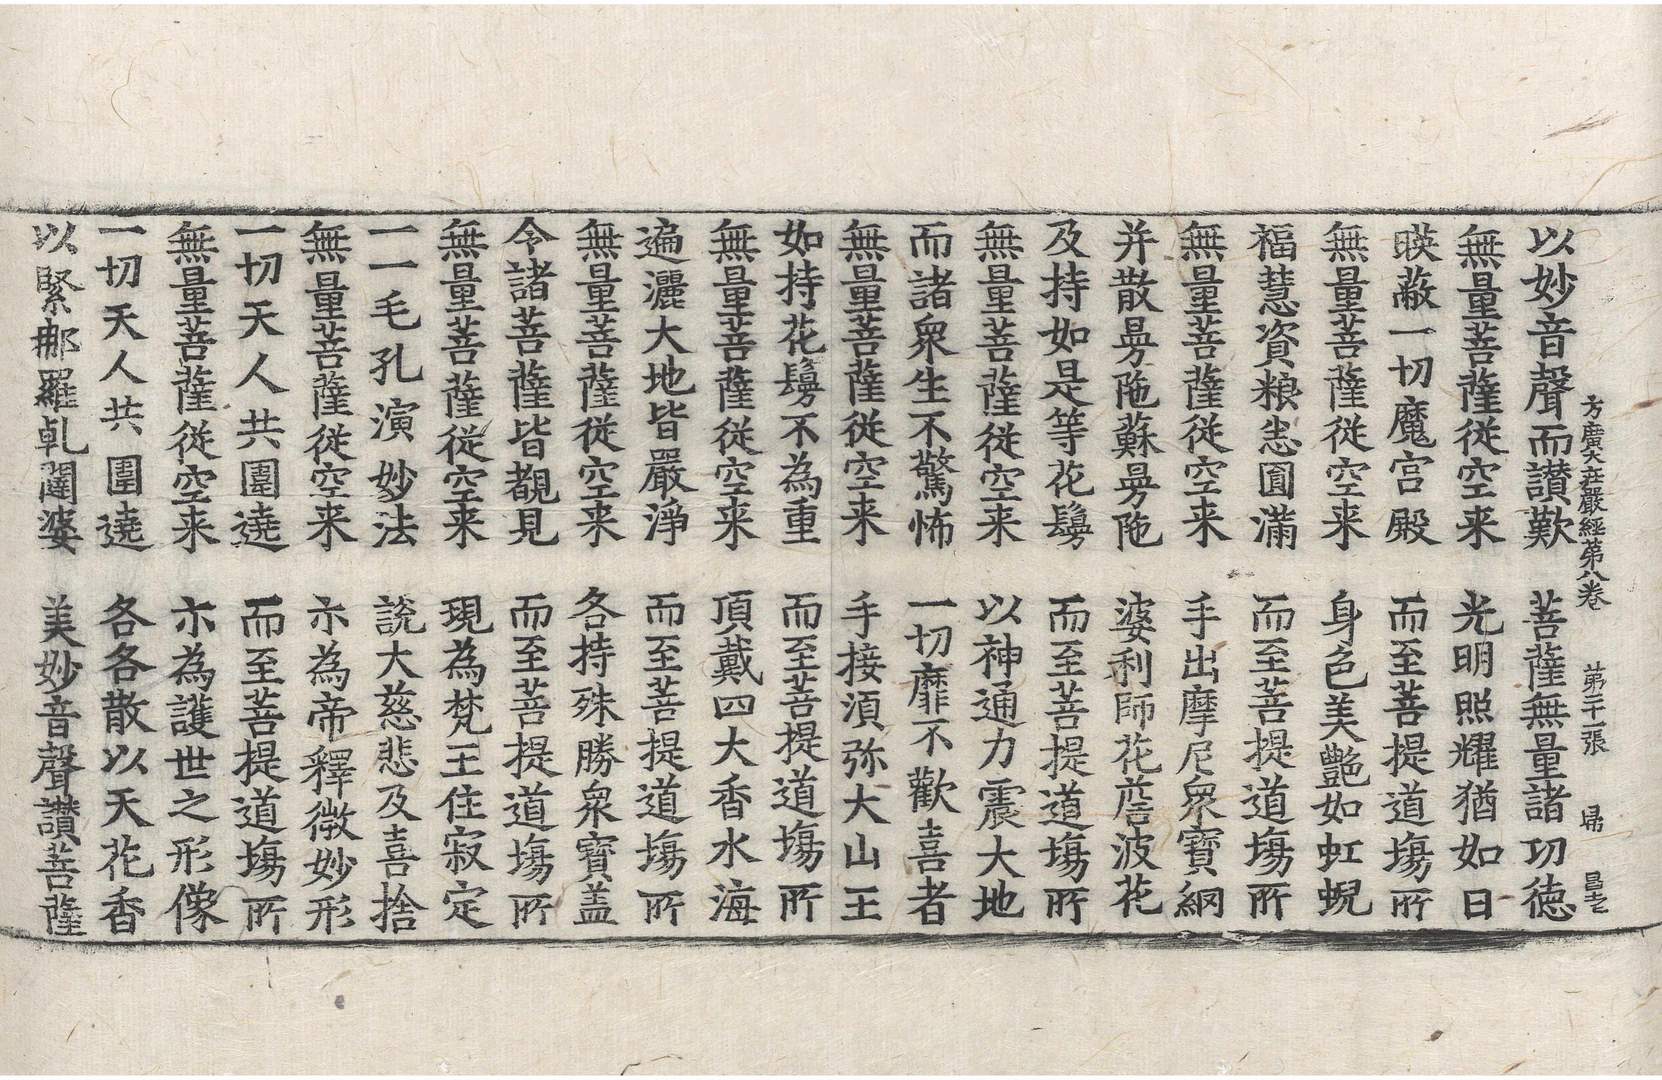 方廣大莊嚴經第八卷 第二十一張 帰 昌之
以妙音聲而讃歎 菩薩無量諸功徳
無量菩薩従空来 光明照耀猶如日
暎蔽一切魔宫殿 而至菩提道塲所
無量菩薩従空来 身色美艶如虹蜺
福慧資粮悉圓滿 而至菩提道塲所
無量菩薩従空来 手出摩尼衆寶網
并散曼陁蘇曼陁 婆利師花瞻波花
及持如是等花鬘 而至菩提道塲所
無量菩薩従空来 以神通力震大地
而諸衆生不驚怖 一切靡不歡喜者
無量菩薩従空来 手接湏弥大山王
如持花鬘不為重 而至菩提道塲所
無量菩薩従空来 頂戴四大香水海
遍灑大地皆嚴淨 而至菩提道塲所
無量菩薩従空来 各持殊勝衆寶盖
令諸菩薩皆覩見 而至菩提道塲所
無量菩薩従空来 現為梵王住寂定
一一毛孔演妙法 説大慈悲及喜捨
無量菩薩従空来 亦為帝釋微妙形
一切天人共圍遶 而至菩提道塲所
無量菩薩従空来 亦為護世之形像
一切天人共圍遶 各各散以天花香
以緊那羅乹闥婆 美妙音聲讃菩薩